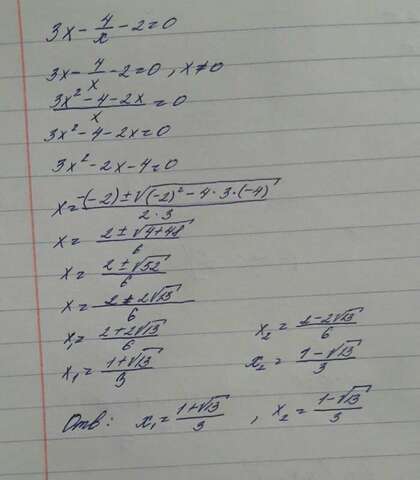 3x - 4/x - 2 = 0
3x - 4/x - 2 = 0, x ≠ 0
(3x² - 4 - 2x)/x = 0
3x² - 4 - 2x = 0
3x² - 2x - 4 = 0
x = (-(-2) ± √((-2)² - 4 · 3 · (-4)))/(2 · 3)
x = (2 ± √(4 + 48))/6
x = (2 ± √52)/6
x = (2 ± 2√13)/6
x₁ = (2 + 2√13)/6 x₂ = (2 - 2√13)/6
x₁ = (1 + √13)/3 x₂ = (1 - √13)/3
Отв: x₁ = (1 + √13)/3, x₂ = (1 - √13)/3